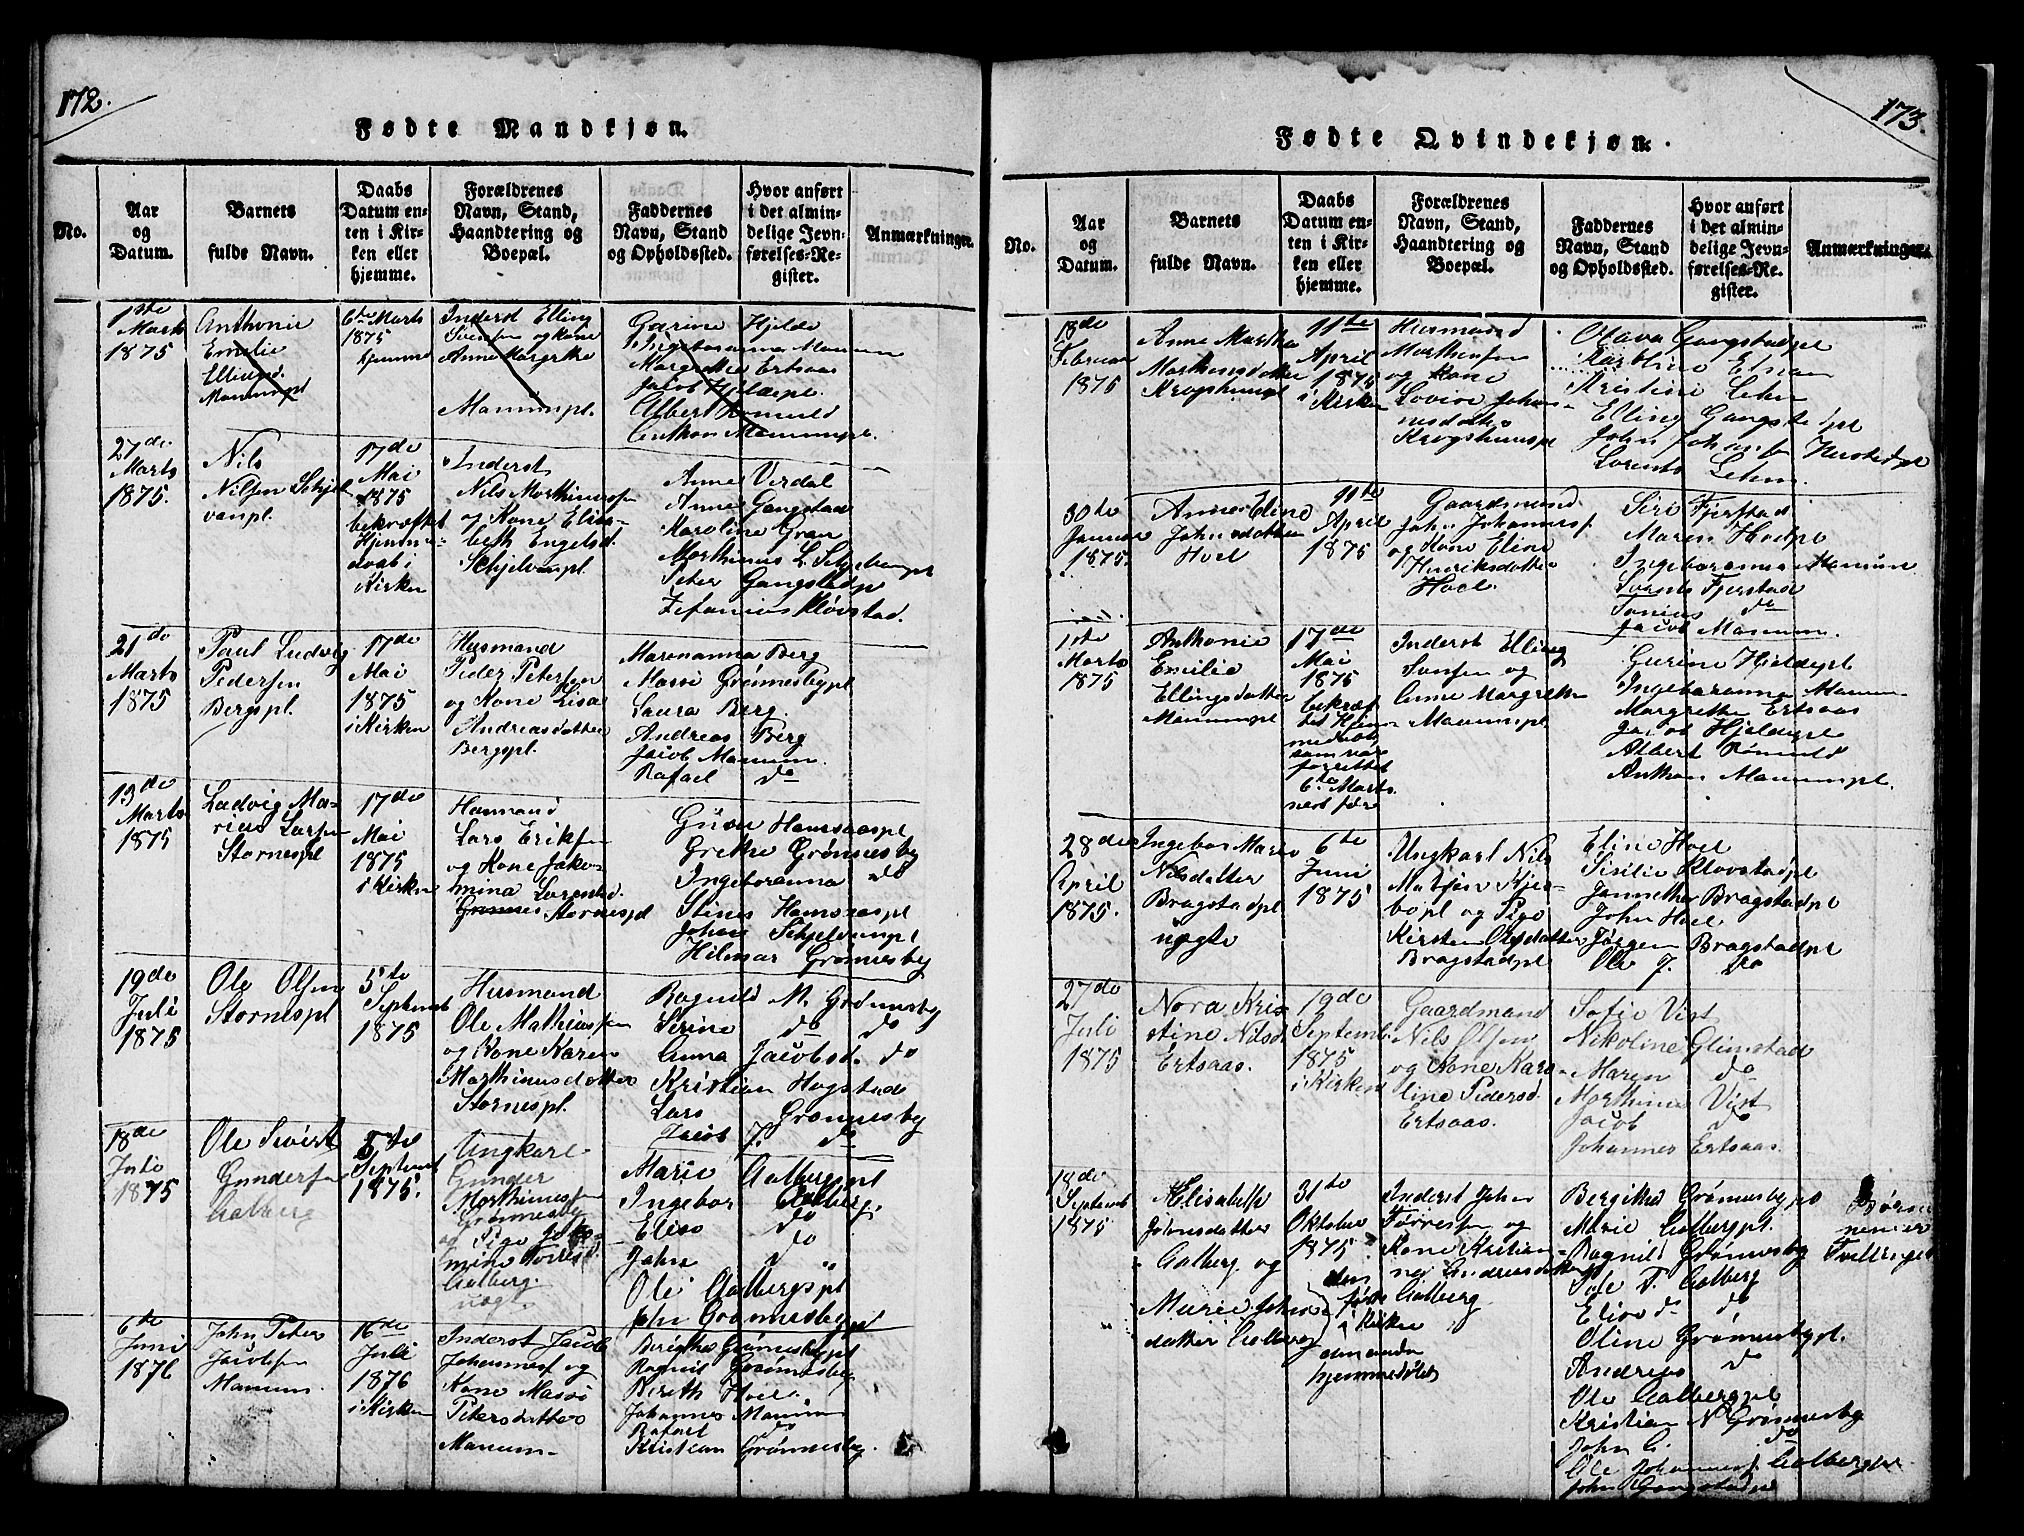 172.
Fødte Mandkjøn.
No.
Aar
og
Datum.
Barnets
fulde Navn.
Daabs
Datum en-
ten i Kir-
ken eller
hjemme.
Forældrenes
Navn, Stand,
Haandtering og
Boepæl.
Faddernes
Navn, Stand
og Opholdssted.
Hvor anført
i det almin-
delige Jevn-
førelses-Re-
gister.
Anmærkninger.
1ste
Marts
1875
Anthonie
Emelie
Ellingsd.
Manumpl
6te Marts
1875
hjemme
Inderst Elling
Svensen og Kone
Anne Margrethe
Manumpl.
Gurine Hjelde
Ingeboranna Manum
Margrethe Ertsaas
Jacob Hjeldepl.
Albert Rømuld
Anthon Manumpl.
27de
Marts
1875.
Nils
Nilsen Schjel
vanpl.
17de
Mai
1875
bekræftet
Hjemme
daab i
Kirken
Inderst
Nils Morthinusen
og Kone Elisa-
beth Engelsd.
Schjelvanpl.
Anne Verdal
Anne Gangstad
Karoline Gran
Morthinus L. Schjelvanpl
Peter Gangstadpl
Zefanias Kløvstad.
21de
Marts
1875
Paul Ludvig
Pedersen
Bergspl.
17de
Mai
1875
i Kirken
Husmand
Peder Petersen
og Kone Lisa
Andreasdatter
Bergspl.
Marenanna Berg
Massi Grønnesbypl
Laura Berg.
Andreas Berg
Jacob Manum.
Rafael do
13de
Marts
1875
Ludvig Ma-
rius Larsen
Stornespl
17de
Mai
1875
i Kirken
Husmand
Lars Eriksen
og Kone Jako-
mina Larsensd.
Stornespl
Guru Hamsaaspl
Grethe Grønnesby
Ingeboranna do
Stines Hamsaaspl
Johan Schjelvanpl
Hilmar Grønnesby
19de
Juli
1875
Ole Olsen
Stornespl
5te
Septemb
1875
Husmand
Ole Mathiassen
og Kone Karen
Morthinusdatter
Stornespl.
Ragnild M. Grønnesby
Serine do do
Anna Jacobsd. do
Kristian Hogstad
Lars Grønnesby
Jacob J. do
18de
Juli
1875
Ole Sivert
Gundersen
Aalberg
5te
Septemb
1875.
Ungkarl
Gunder
Morthinusen
Grønnesby
og Pige Jako-
mine Torresd.
Aalberg.
uægte
Marie Aalbergpl
Ingebor Aalberg.
Eliso do
John do
Ole Aalbergspl
John Grønnesbypl
6te
Juni
1876
John Peter
Jacobsen
Manum.
16de
Juli
1876
i Kirken
Inderst Jacob
Johannesen og
Kone Massi
Petersdatter
Manum
Berigthe Grønnesbypl
Ragnil Grønnesby
Berith Hoel.
Johannes Manum
Rafael do
Kristian Grønnesby.
173.
Fødte Qvindekjøn.
No.
Aar
og
Datum.
Barnets
fulde Navn.
Daabs
Datum en-
ten i Kir-
ken eller
hjemme.
Forældrenes
Navn, Stand,
Haandtering og
Boepæl.
Faddernes
Navn, Stand
og Opholdssted.
Hvor anført
i det almin-
delige Jevn-
førelses-Re-
gister.
Anmærkninger.
18de
Februar
1875
Anne Martha
Morthensdatter
Krogshuuspl
11te
April
1875
i Kirken
Husmand
Morthinsen
og Kone
Lovise Johan-
nesdatter
Krogshuuspl
Olava Gangstadpl
Karoline Elnan
Kristine Lehn
Elling Gangstadpl
John Johannes Hustadpl
Lorents Lehn.
30te
Januar
1875.
Anne Eline
Johnsdatter
Hoel
11te
April
1875
Gaardsmand
John Johannesen
og Kone Eline
Henriksdatter
Hoel.
Siri Fjerstad
Maren Hoelpl
Ingeboranna Manum
Lorents Fjerstad
Tonius do
Jacob Manum.
1ste
Marts
1875
Anthonie
Emilie
Ellingsdatter
Manumpl
17de
Mai
1875
bekræf-
tet Hjem-
medaab,
som var
forrettet
6te Marts
næst før
Inderst Elling
Svensen og
Anne Margrethe
Manumpl.
Gurine Hjeldepl
Ingeboranna Manum
Margrethe Ertsaas
Jacob Hjeldepl
Albert Rømuld
Anthon Manumpl.
28de
April
1875.
Ingebor Maren
Nilsdatter
Bragstadpl
uægte
6te
Juni
1875
Ungkarl Nils
Matsen Kjes-
bopl og Pige
Kirsten Olesdatter
Bragstadpl
Eline Hoel
Sisilie Kløvstadpl
Jannetha Bragstadpl
John Hoel
Jørgen Bragstadpl
Ole J. do
27de
Juli
1875
Nora Kris
stine Nilsd
Ertsaas.
19de
Septemb.
1875
i Kirken
Gaardmand
Nils Olsen
og Kone Karo-
line Pedersd.
Ertsaas.
Sofie Vist
Nikoline Glimstad
Maren do
Morthinus Vist
Jacob
Johannes Ertsaas.
18de
Septemb
1875
Elisabeth
Johnsdatter
Aalberg og
Marie Johns-
datter Aalberg
31te
Oktober
1875.
den
første
i Kirken
den anden
hjemmedøbt
Inderst John
Torresen og
Kone Kristian-
ne Andreasdatter
Aalberg
Bergithe Grønnesbypl
Marie Aalbergpl.
Ragnil Grønnesby
Ole T. Aalberg
Eliso do do
Oline Grønnesbypl.
Andreas do
Ole Aalbergpl
Kristian N Grønnesby
John C. do
Ole Johannesen Aalbergpl
John Gangstadpl
Børne-
nemer
Tvillinger